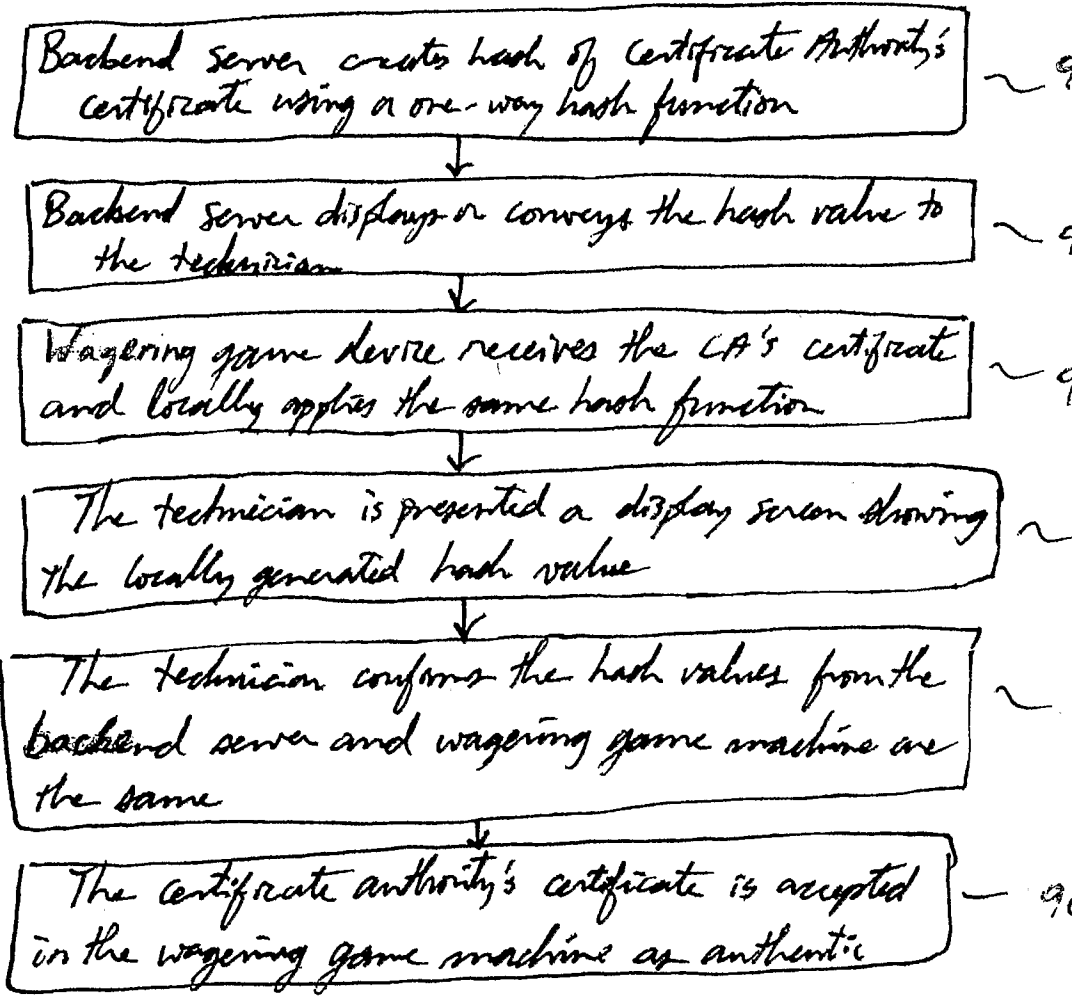 Backend server creates hash of Certificate Authority's
certificate using a one-way hash function
9
Backend server displays or conveys the hash value to
the technician
9
Wagering game device receives the CA's certificate
and locally applies the same hash function
9
The technician is presented a display screen showing
the locally generated hash value
The technician confirms the hash values from the
backend server and wagering game machine are
the same
The certificate authority's certificate is accepted
in the wagering game machine as authentic
90